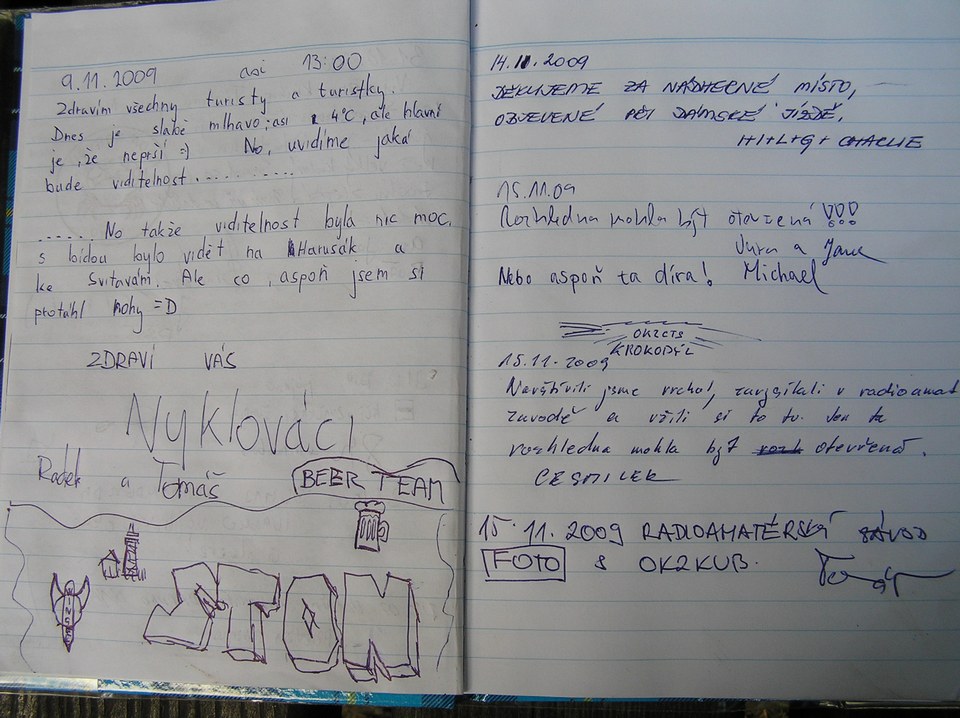 9.11.2009 asi 13:00
Zdravím všechny turisty a turistky.
Dnes je slabě mlhavo, asi 4°C, ale hlavní
je, že neprší =) No, uvidíme jaká
bude viditelnost..............
...... No takže viditelnost byla nic moc,
s bídou bylo vidět na Harusák a
ke Svitavám. Ale co, aspoň jsem si
protáhl nohy =D
ZDRAVÍ VÁS
Nyklováci
Radek a Tomáš
BEER TEAM
STON
14.11.2009
DĚKUJEME ZA NÁDHERNÉ MÍSTO,
OBJEVENÉ PŘI DÁMSKÉ JÍZDĚ,
H+I+L+G+ CHARLIE
15.11.09
Rozhledna mohla být otevřená !!!
Jura a Jana
Nebo aspoň ta díra! Michael
KROKODÝL
15.11.2009
Navštívili jsme vrchol, zavysílali v radioamat
závodě a užili si to tu. Jen ta
rozhledna mohla být otevřená.
15.11.2009 RADIOAMATÉRSKÝ ZÁVOD
FOTO S OK2KUB.